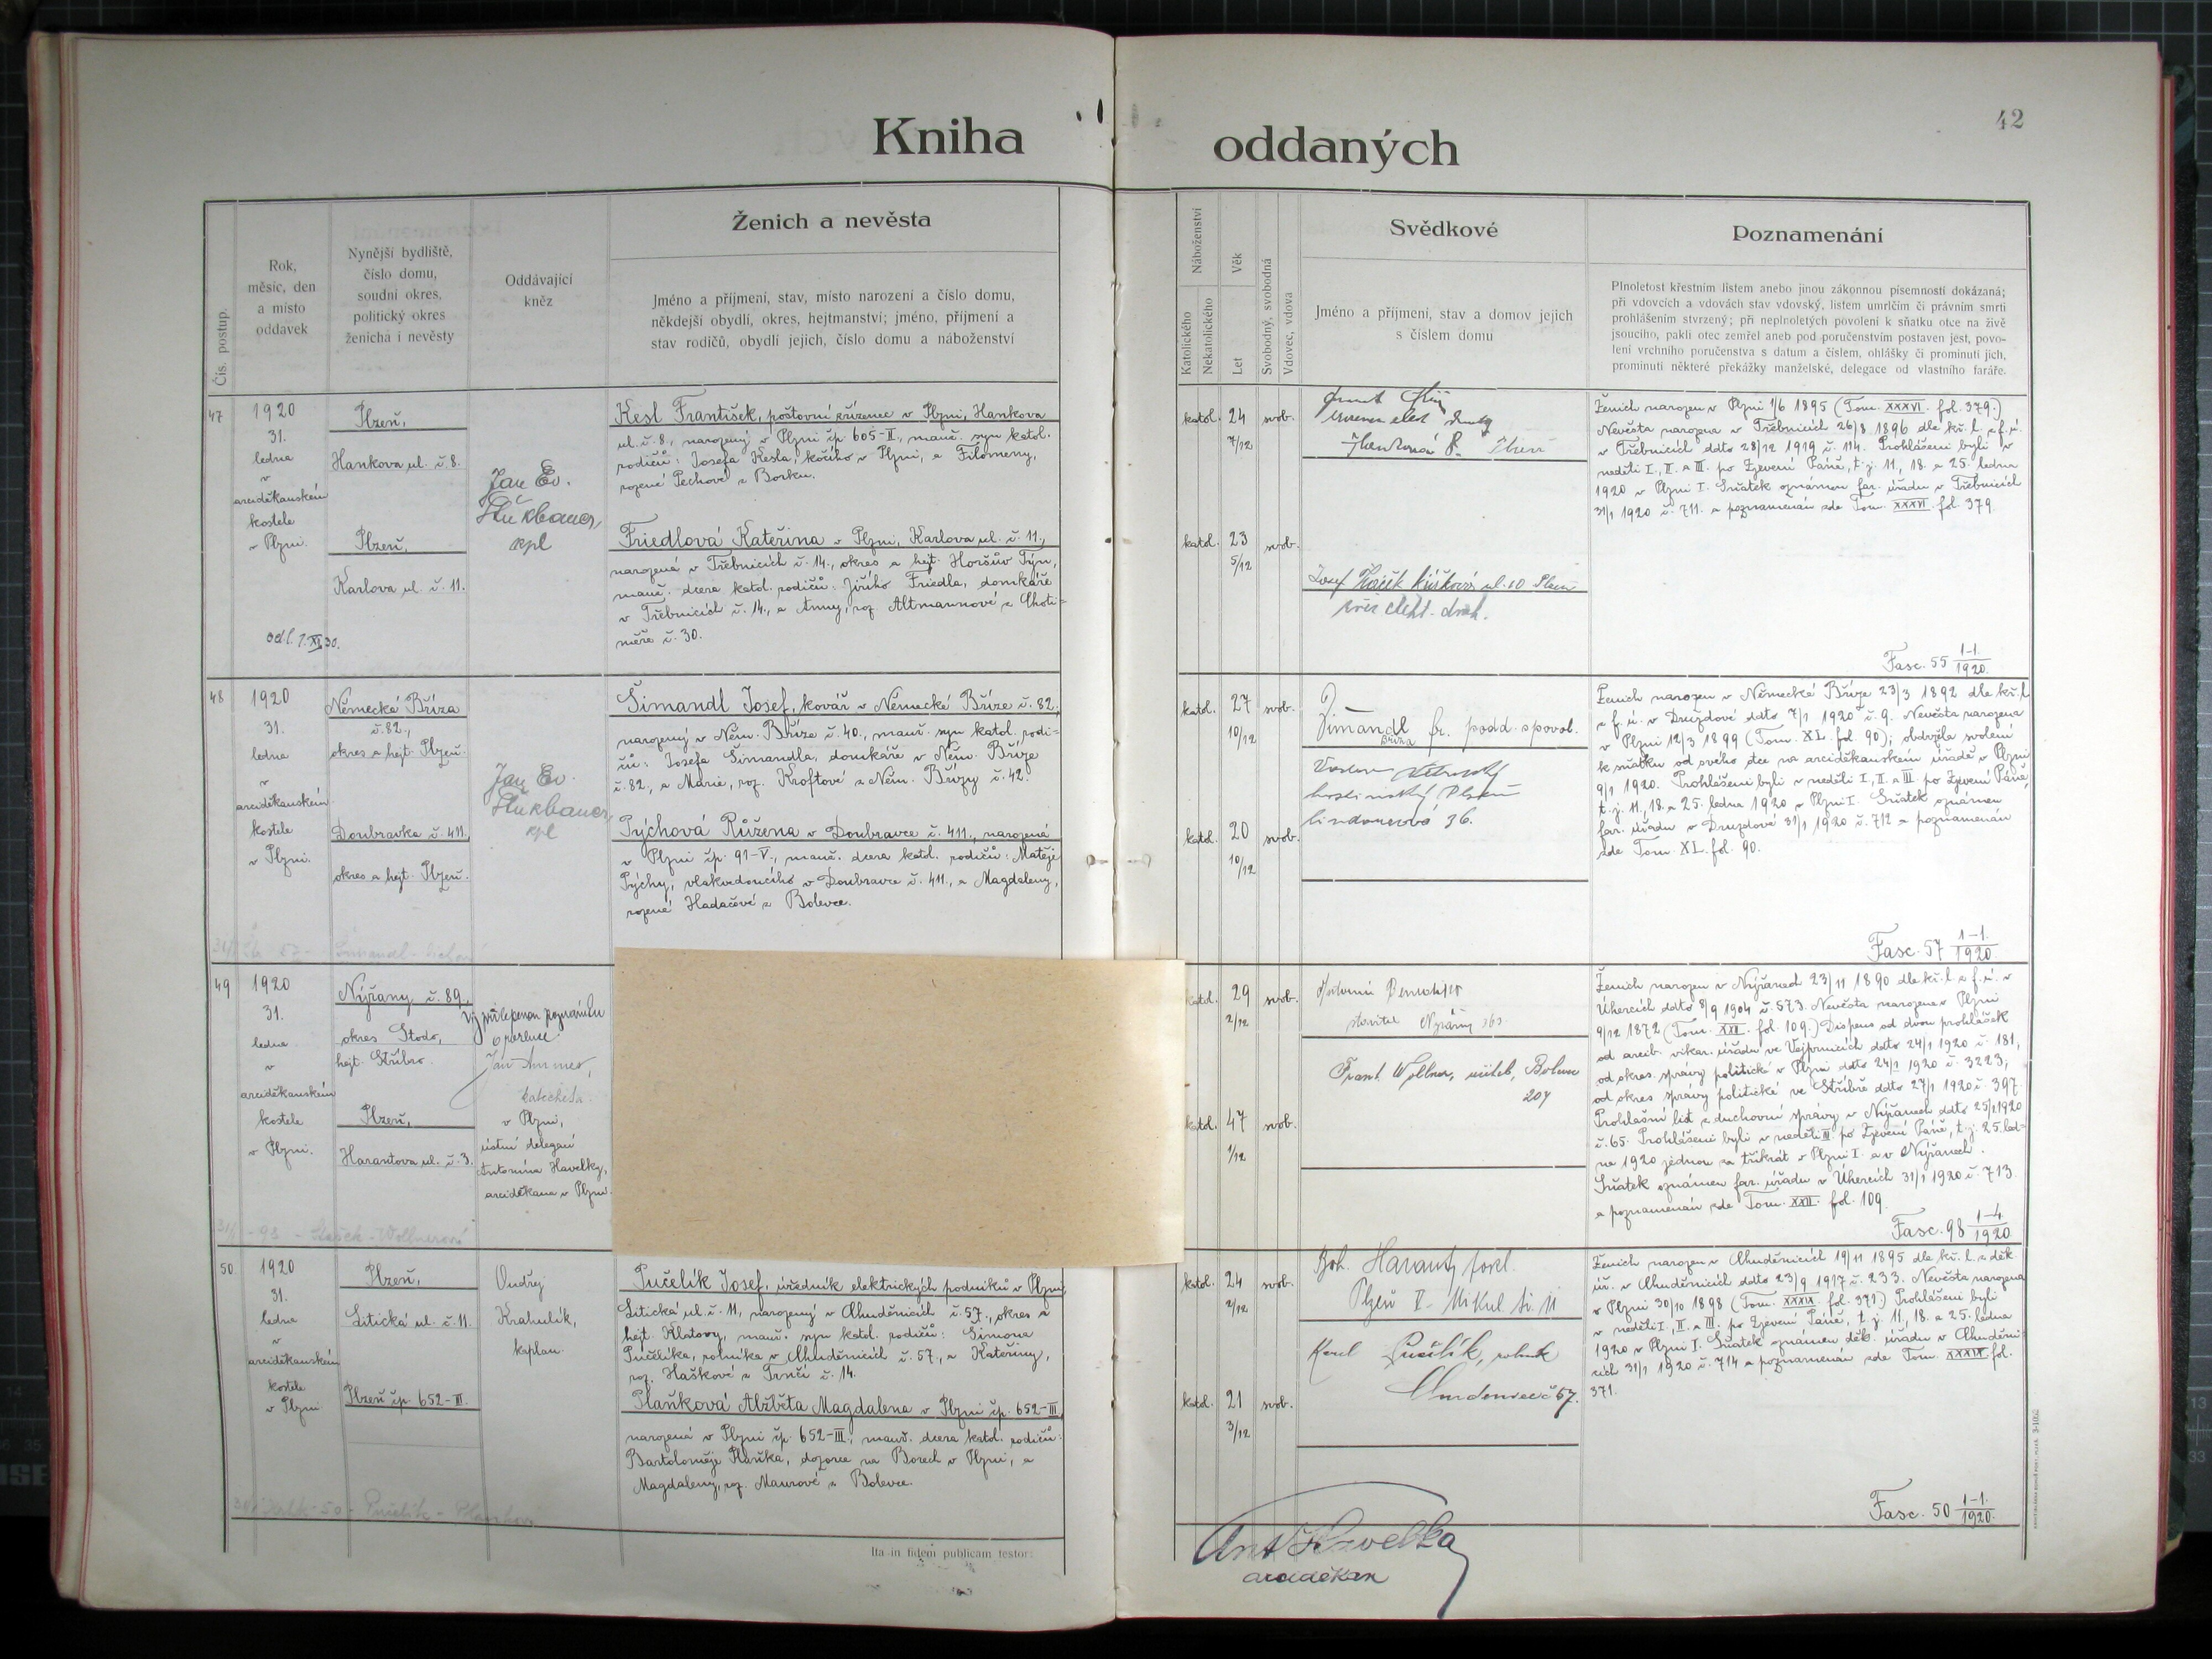 42
Kniha oddaných
Čís. postup.
Rok,
měsíc, den
a místo
oddavek
Nynější bydliště,
číslo domu,
soudní okres,
politický okres
ženicha i nevěsty
Oddávající
kněz
Ženich a nevěsta
Jméno a příjmení, stav, místo narození a číslo domu,
někdejší obydlí, okres, hejtmanství; jméno, příjmení a
stav rodičů, obydlí jejich, číslo domu a náboženství
Náboženství
Katolického
Nekatolického
Věk
Let
Svobodný, svobodná
Vdovec, vdova
Svědkové
Jméno a příjmení, stav a domov jejich
s číslem domu
Poznamenání
Plnoletost křestním listem anebo jinou zákonnou písemností dokázaná;
při vdovcích a vdovách stav vdovský, listem umrlčím či právním smrti
prohlášením stvrzený; při neplnoletých povolení k sňatku otce na živě
jsoucího, pakli otec zemřel aneb pod poručenstvím postaven jest, povo-
lení vrchního poručenstva s datum a číslem, ohlášky či prominutí jich,
prominutí některé překážky manželské, delegace od vlastního faráře.
47
1920
31.
ledna
v
arciděkanském
kostele
v Plzni.
odl. 7. XI 30.
Plzeň,
Hankova ul. č. 8.
Plzeň,
Karlova ul. č. 11.
Jan Ev.
kpl
Kesl František, poštovní zřízenec v Plzni, Hankova
ul. č. 8., narozený v Plzni čp. 605-II., manž. syn katol.
rodičů: Josefa Kesla, kočího v Plzni, a Filomeny,
rozené Pechové z Borku.
Friedlová Kateřina v Plzni, Karlova ul. č. 11.,
narozená v Třebnicích č. 14., okres a hejt. Horšův Týn,
manž. dcera katol. rodičů: Jiřího Friedla, domkáře
v Třebnicích č. 14., a Anny, roz. Altmannové z Choti-
měře č. 30.
katol. 24 svob.
7/12
katol. 23 svob.
5/12
Josef ul. 10 Plzeň
Ženich narozen v Plzni 1/6 1895 (Tom. XXXVI. fol. 379.)
Nevěsta narozena v Třebnicích 26/8 1896 dle kř. l. z f. ú.
v Třebnicích ddto 28/12 1919 č. 114. Prohlášeni byli v
neděli I., II. a III. po Zjevení Páně, t. j. 11., 18. a 25. ledna
1920 v Plzni I. Sňatek oznámen far. úřadu v Třebnicích
31/1 1920 č. 711. a poznamenán zde Tom. XXXVI. fol. 379.
Fasc. 55 1-1./1920.
48
1920
31.
ledna
v
arciděkanském
kostele
v Plzni.
Německá Bříza
č. 82.,
okres a hejt. Plzeň.
Doubravka č. 411.
okres a hejt. Plzeň.
Jan Ev.
kpl
Šimandl Josef, kovář v Německé Bříze č. 82.,
narozený v Něm. Bříze č. 40., manž. syn katol. rodi-
čů: Josefa Šimandla, domkáře v Něm. Bříze
č. 82., a Marie, roz. Kroftové z Něm. Břízy č. 42.
Týchová Růžena v Doubravce č. 411., narozená
v Plzni čp. 91-V., manž. dcera katol. rodičů: Matěje
Týchy, vlakvedoucího v Doubravce č. 411., a Magdaleny,
rozené Hadačové z Bolevce.
katol. 27 svob.
10/12
katol. 20 svob.
10/12
Šimandl fr.
Bříza
Václav
hostinský Plzeň
36.
Ženich narozen v Německé Bříze 23/3 1892 dle kř. l.
z f. ú. v Druzdové ddto 7/1 1920 č. 9. Nevěsta narozena
v Plzni 12/3 1899 (Tom. XL. fol. 90); obdržela svolení
k sňatku od svého otce na arciděkanském úřadě v Plzni
9/1 1920. Prohlášeni byli v neděli I., II. a III. po Zjevení Páně,
t. j. 11., 18. a 25. ledna 1920 v Plzni I. Sňatek oznámen
far. úřadu v Druzdové 31/1 1920 č. 712 a poznamenán
zde Tom. XL. fol. 90.
Fasc. 57 1-1./1920
49
1920
31.
ledna
v
arciděkanském
kostele
v Plzni.
Nýřany č. 89.,
okres Stodo,
hejt. Stříbro.
Plzeň,
Harantova ul. č. 3.
Jan
katecheta
v Plzni,
ústní delegací
Antonína Havelky,
arciděkana v Plzni.
katol. 29 svob.
2/12
katol. 47 svob.
1/12
stavitel Nýřany 363.
Frant. Wollner, učitel, Bolevec
207
Ženich narozen v Nýřanech 23/11 1890 dle kř. l. z f. ú. v
Úhercích ddto 8/9 1904 č. 573. Nevěsta narozena v Plzni
9/12 1872 (Tom. XXII. fol. 109.) Dispens od dvou prohlášek
od arcib. vikar. úřadu ve Vejprnicích ddto 24/1 1920 č. 181,
od okres. správy politické v Plzni ddto 24/1 1920 č. 3223,
od okres správy politické ve Stříbře ddto 27/1 1920 č. 397.
Prohlašní list z duchovní správy v Nýřanech ddto 25/1 1920
č. 65. Prohlášeni byli v neděli III. po Zjevení Páně, t. j. 25. led-
na 1920 jednou za třikrát v Plzni I. a v Nýřanech.
Sňatek oznámen far. úřadu v Úhercích 31/1 1920 č. 713.
a poznamenán zde Tom. XXII. fol. 109.
Fasc. 98 1-4./1920
50
1920
31.
ledna
v
arciděkanském
kostele
v Plzni
Plzeň,
Litická ul. č. 11.
Plzeň čp. 652-III.
Ondřej
Krahulík,
kaplan.
Pučelík Josef, úředník elektrických podniků v Plzni,
Litická ul. č. 11, narozený v Chuděnicích č. 57., okres a
hejt. Klatovy, manž. syn katol. rodičů: Šimona
Pučelíka, rolníka v Chuděnicích č. 57., a Kateřiny,
roz. Haškové z Trnčí č. 14.
Plaňková Alžběta Magdalena v Plzni čp. 652-III.,
narozená v Plzni čp. 652-III., manž. dcera katol. rodičů:
Bartoloměje Plaňka, dozorce na Borech v Plzni, a
Magdaleny, roz. Maurové z Bolevce.
katol. 24 svob.
2/12
katol. 21 svob.
3/12
Boh. Harant
Plzeň II - Mikul. 11
Karel Pučelík, rolník
č 57.
Ženich narozen v Chuděnicích 19/11 1895 dle kř. l. z děk.
úř. v Chuděnicích ddto 23/9 1917 č. 233. Nevěsta narozena
v Plzni 30/10 1898 (Tom. XXXIX fol. 371.) Prohlášeni byli
v neděli I., II. a III. po Zjevení Páně, t. j. 11., 18. a 25. ledna
1920 v Plzni I. Sňatek oznámen děk. úřadu v Chuděni-
cích 31/1 1920 č. 714 a poznamenán zde Tom. XXXIX fol.
371.
Fasc. 50 1-1./1920.
Ita in fidem publicam testor:
Ant. Havelka
arciděkan